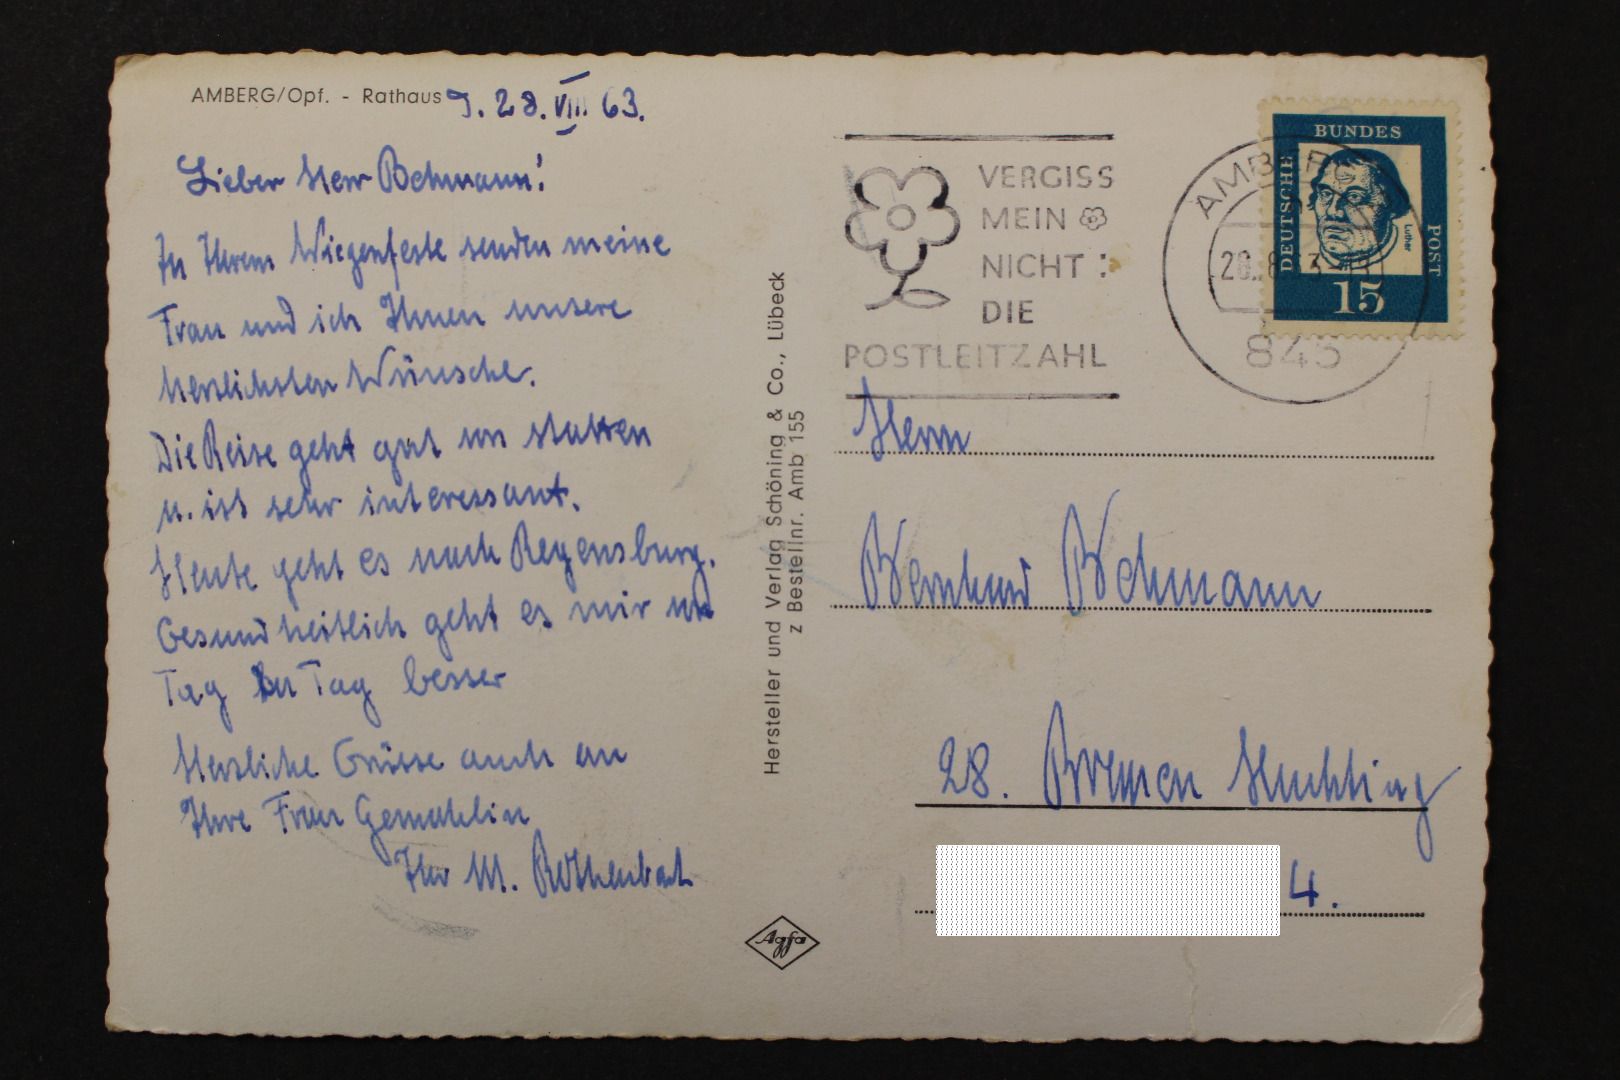 AMBERG/Opf. - Rathaus
28. VIII 63.
Lieber Herr Bchmann!
zu Ihrem Wiegenfeste senden meine
Frau und ich Ihnen unsere
herzlichsten Wünsche.
Die Reise geht gut von statten
u. ist sehr interessant.
Heute geht es nach Regensburg.
Gesundheitlich geht es mir von
Tag zu Tag besser
Herzliche Grüsse auch an
Ihre Frau Gemahlin
Ihr M. Rothenbach
Hersteller und Verlag Schöning & Co., Lübeck
z Bestellnr. Amb 155
Agfa
VERGISS
MEIN
NICHT:
DIE
POSTLEITZAHL
AMBERG
845
BUNDES
DEUTSCHE
POST
Luther
15
Herrn
Bernhard Bchmann
28. Bremen Huchting
4.